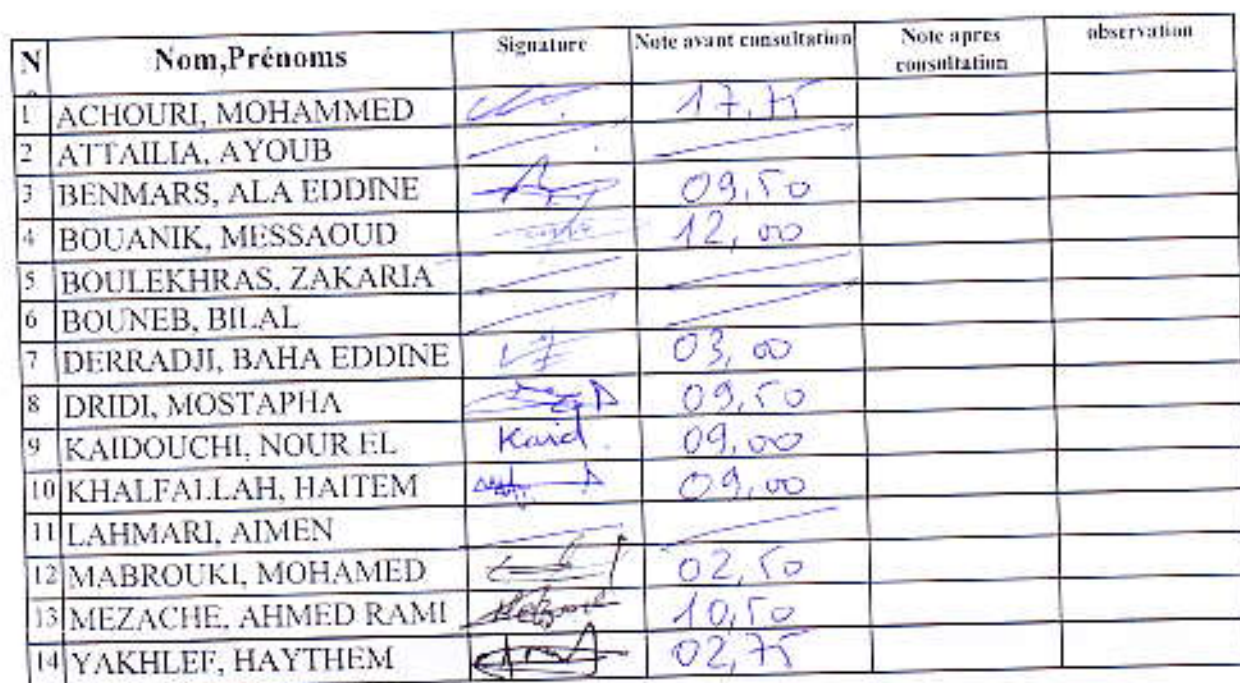 N Nom,Prénoms Signature Note avant consultation Note apres consultation observation
1 ACHOURI, MOHAMMED 17,75
2 ATTAILIA, AYOUB
3 BENMARS, ALA EDDINE 09,50
4 BOUANIK, MESSAOUD 12,00
5 BOULEKHRAS, ZAKARIA
6 BOUNEB, BILAL
7 DERRADJI, BAHA EDDINE 03,00
8 DRIDI, MOSTAPHA 09,50
9 KAIDOUCHI, NOUR EL Kaid. 09,00
10 KHALFALLAH, HAITEM 09,00
11 LAHMARI, AIMEN
12 MABROUKI, MOHAMED 02,50
13 MEZACHE, AHMED RAMI 10,50
14 YAKHLEF, HAYTHEM 02,75